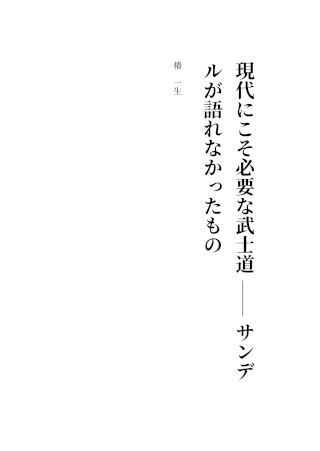 現代にこそ必要な武士道 ―― サンデ
ルが語れなかったもの
椿 一生